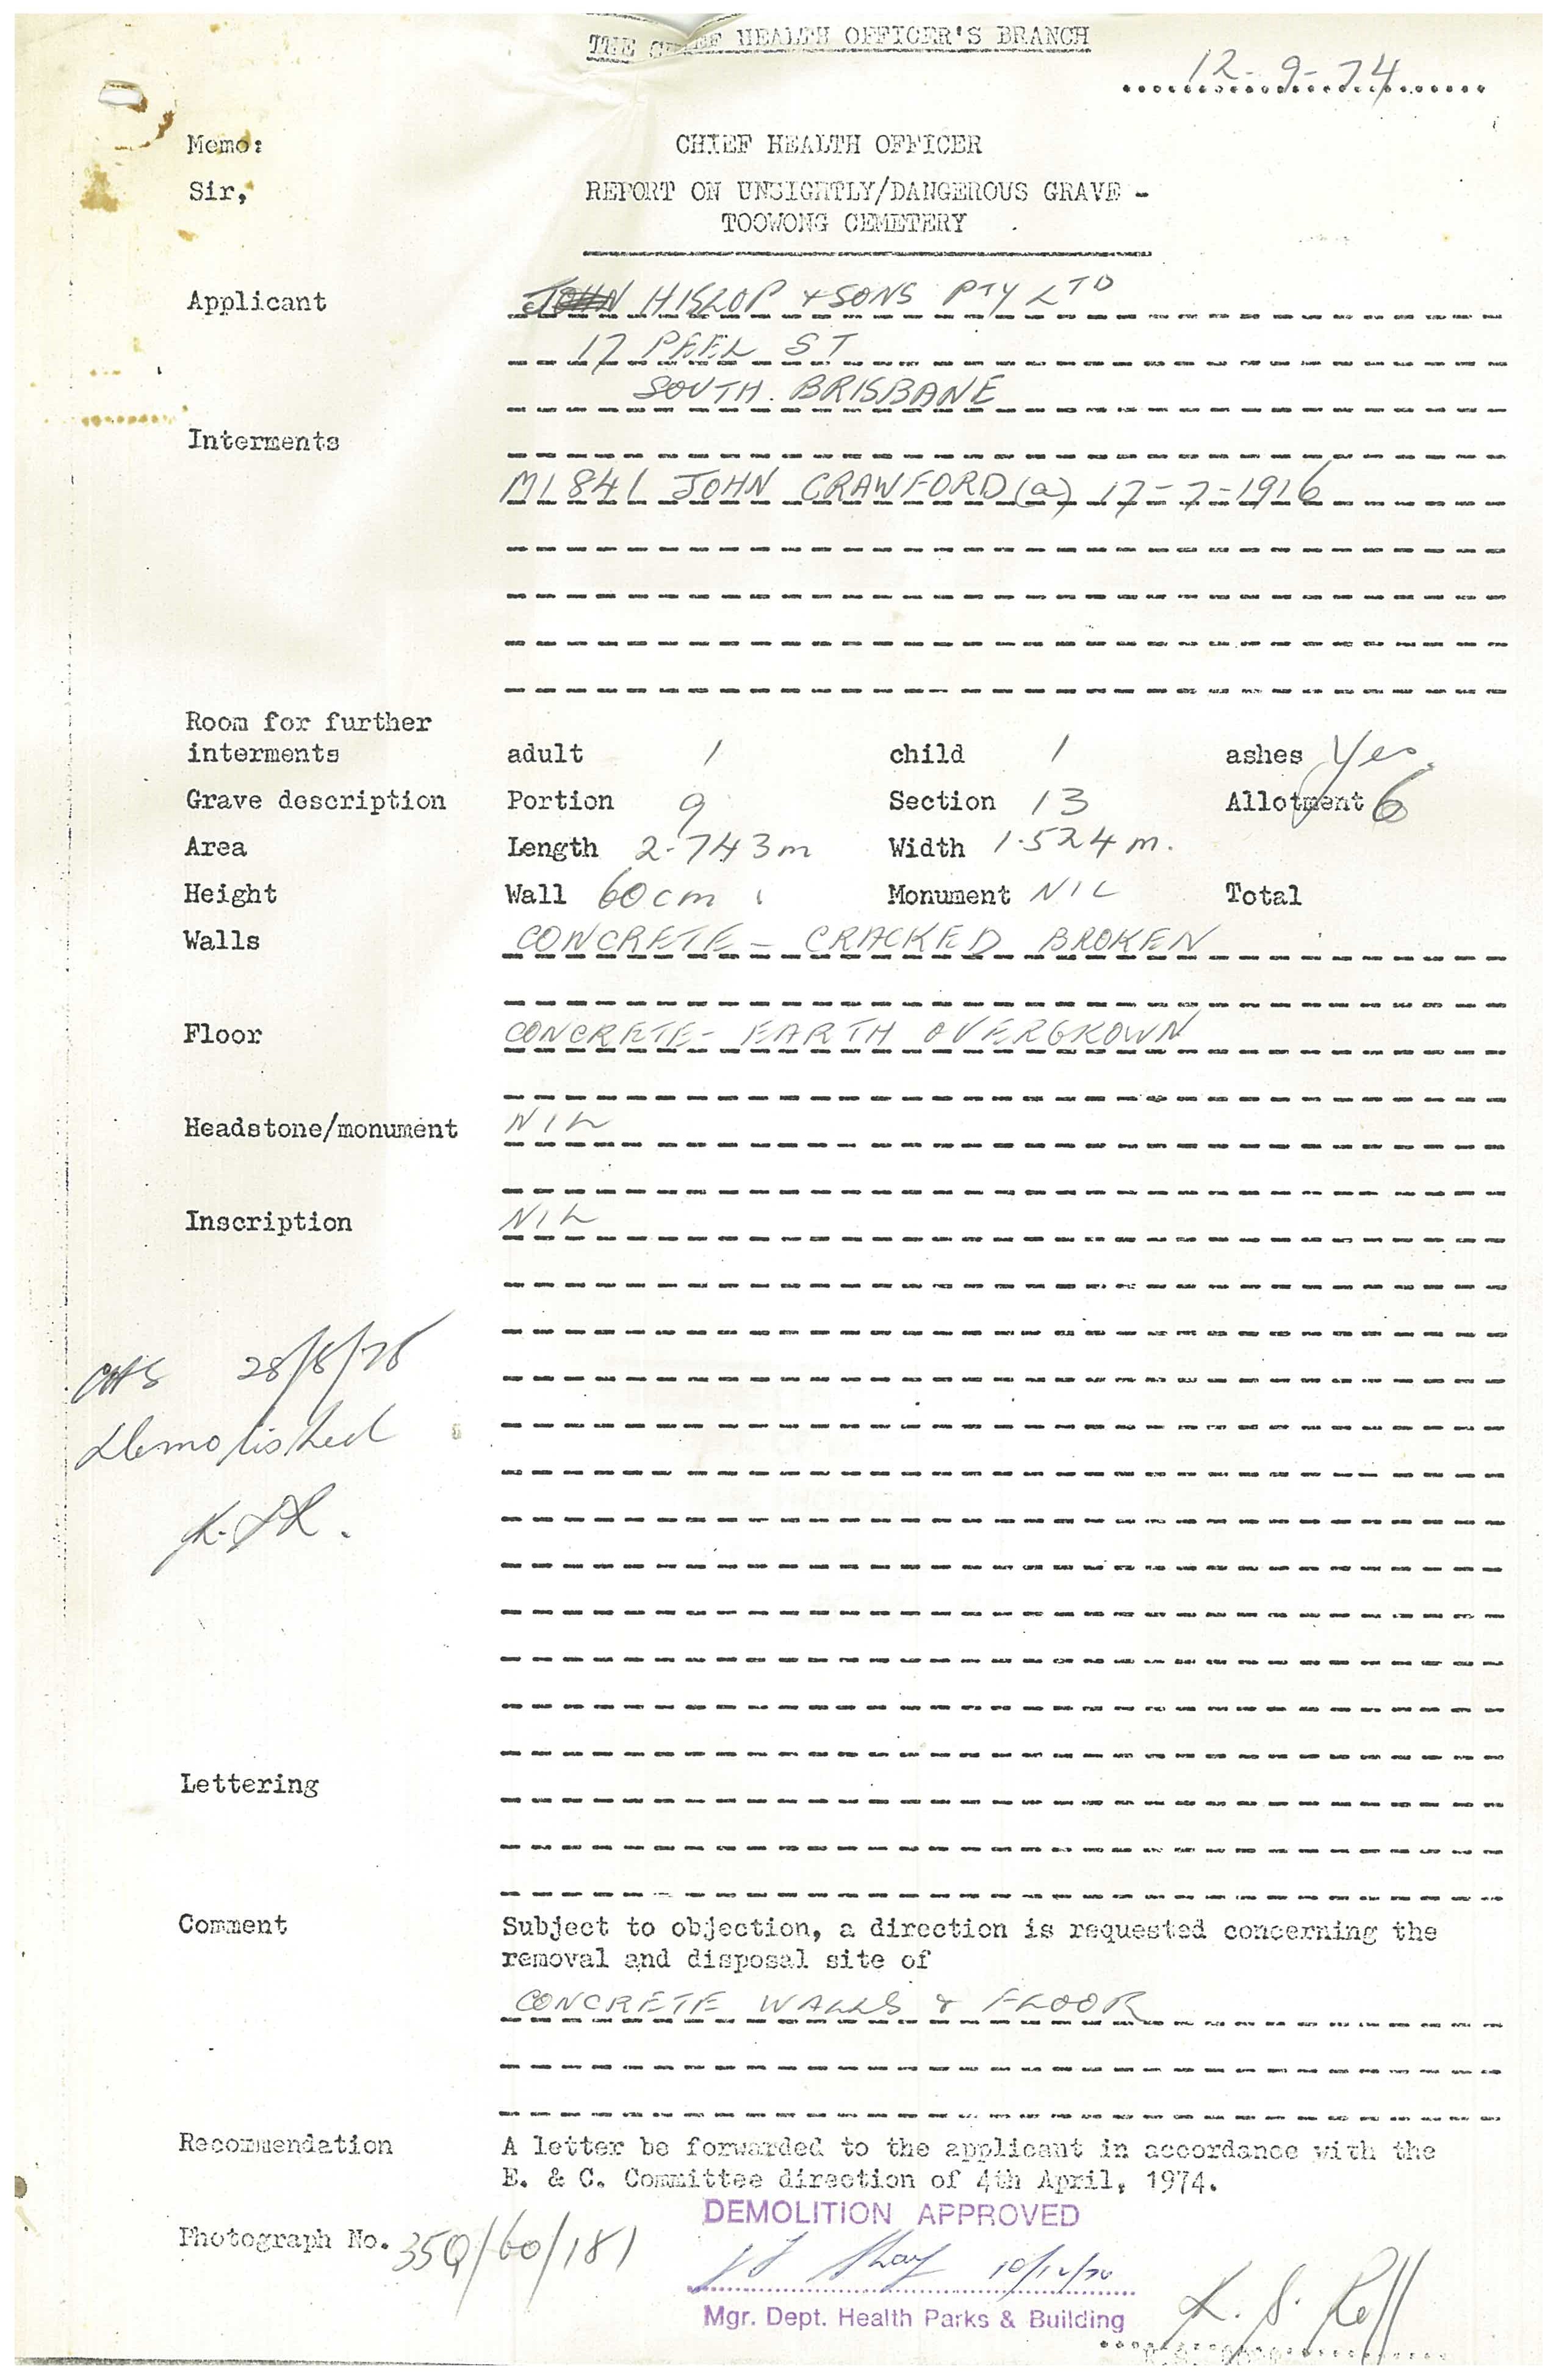 THE CHIEF HEALTH OFFICER'S BRANCH
12-9-74
Memo: CHIEF HEALTH OFFICER
Sir, REPORT ON UNSIGHTLY/DANGEROUS GRAVE -
TOOWONG CEMETERY
Applicant JOHN HISLOP & SONS PTY LTD
17 PEEL ST
SOUTH. BRISBANE
Interments
M1841 JOHN CRAWFORD (a) 17-7-1916
Room for further
interments adult 1 child 1 ashes Yes.
Grave description Portion 9 Section 13 Allotment 6
Area Length 2.743m Width 1.524m.
Height Wall 60cm Monument NIL Total
Walls CONCRETE - CRACKED BROKEN
Floor CONCRETE - EARTH OVERGROWN
Headstone/monument NIL
Inscription NIL
28/8/78
Demolished
Lettering
Comment Subject to objection, a direction is requested concerning the
removal and disposal site of
CONCRETE WALLS & FLOOR
Recommendation A letter be forwarded to the applicant in accordance with the
E. & C. Committee direction of 4th April, 1974.
DEMOLITION APPROVED
Photograph No. 35Q/60/181
Mgr. Dept. Health Parks & Building